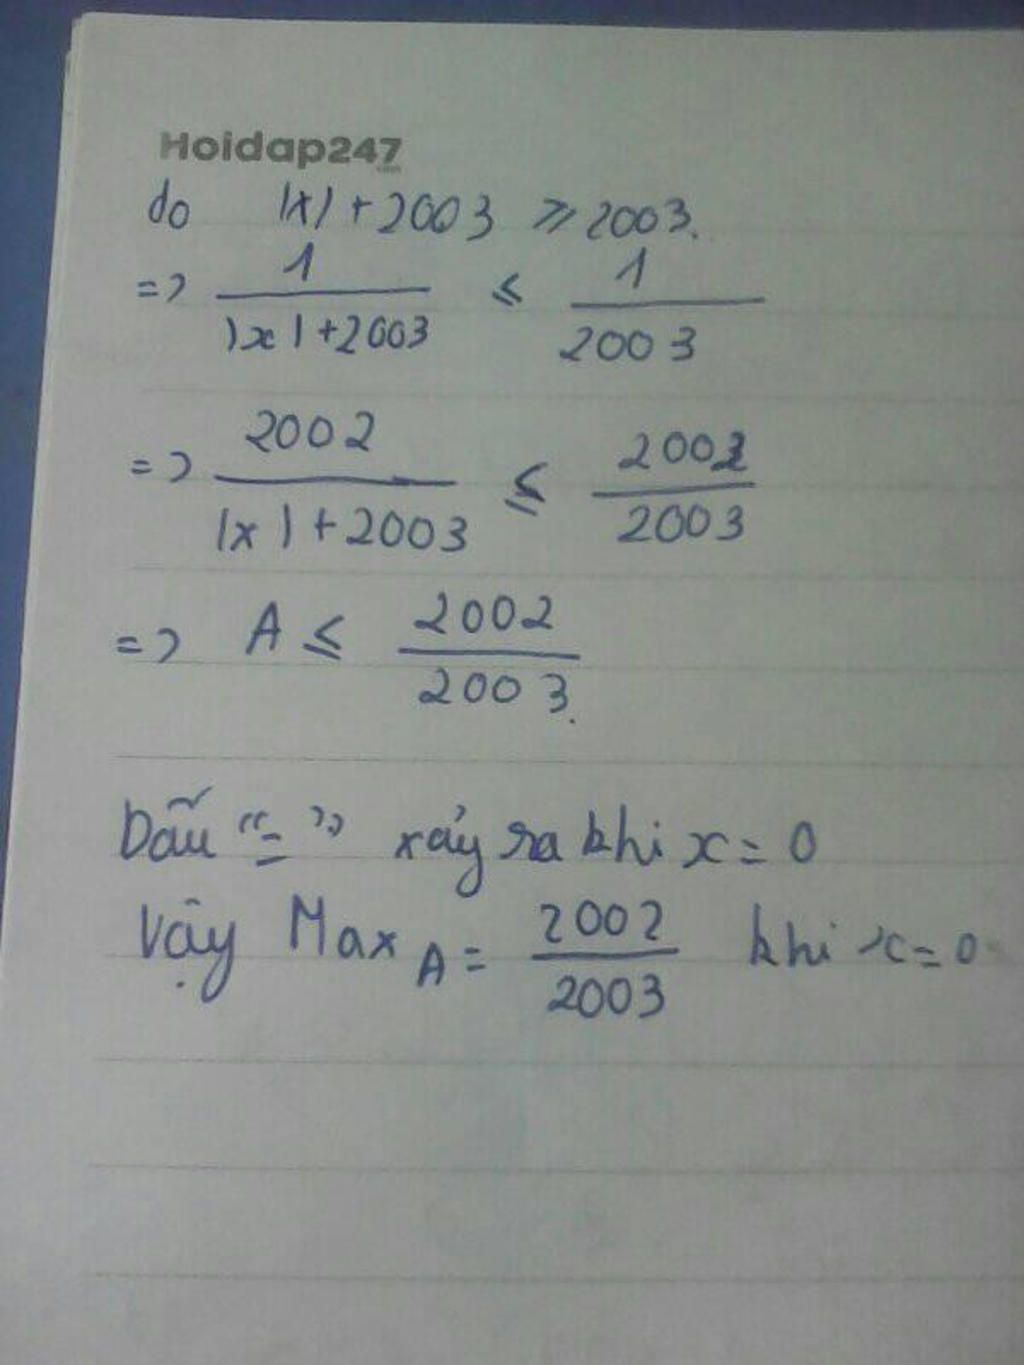 Hoidap247
.com
do |x| + 2003 ⩾ 2003.
=> 1 / (|x| + 2003) ≤ 1 / 2003
=> 2002 / (|x| + 2003) ≤ 2002 / 2003
=> A ≤ 2002 / 2003.
Dấu "=" xảy ra khi x = 0
Vậy Max A = 2002 / 2003 khi x = 0